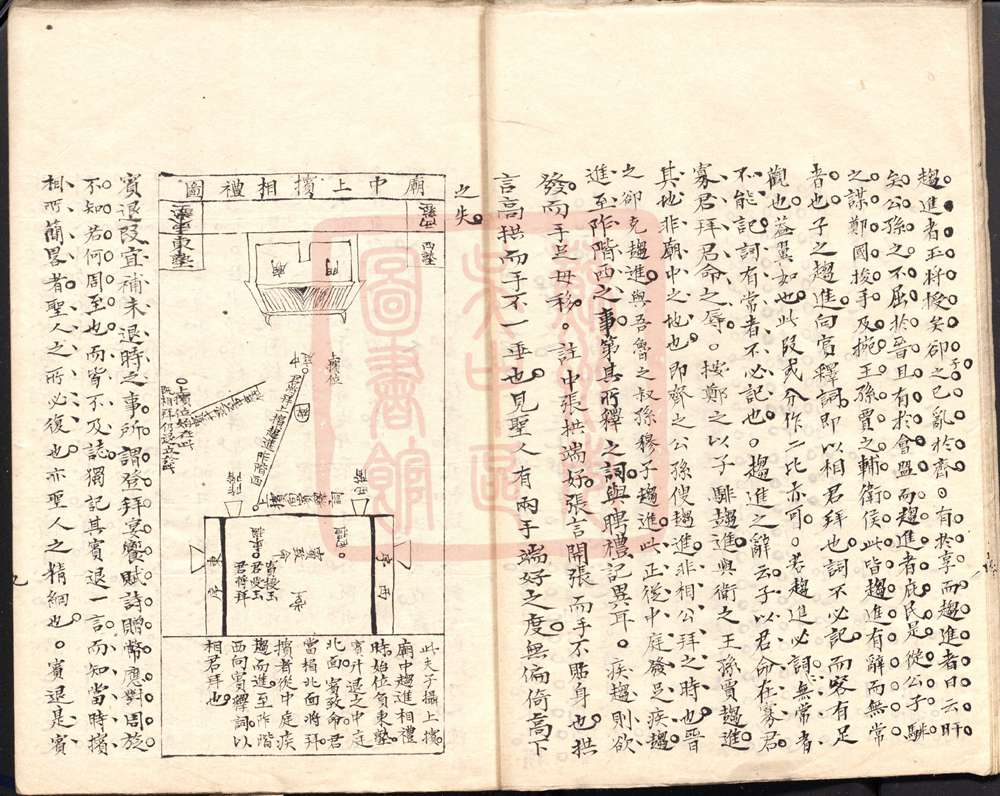 趨進者玉將授矣卻之已亂於齊有於享而趨進者曰云旰
矣公孫之不屈於晉且有於會盟而趨進者庶民是從公子騑
之謀鄭國捘手及捥王孫賈之輔衛侯此皆趨進有辭而無常
者也子之趨進向賓釋詞即以相君拜也詞不必記而容有足
觀也益翼如也此段民分作二比亦可若趨進必詞無常者
不能記詞有常者不必記也趨進之辭云子以君命在寡君
寡君拜君命之辱按鄭之以子騑趨進與衛之王孫賈趨進
其地非廟中之地也即齊之公孫傁趨進非相公拜之時也晉
之卻克趨進與吾魯之叔孫穆子趨進此正後中庭發足疾趨
進至阼階西之事第其所釋之詞與聘禮記異耳疾趨則欲
發而手足毋移註中張拱端好張言開張而手不貼身也拱
言高拱而手不一垂也見聖人有兩手端好之度無偏倚高下
之失
廟中上擯相禮圖
西塾
東塾
門
廟
上擯位
中庭
君將拜上擯趨進阼階西
碑
阼階
西階
賓致命
堂
東序
西序
此夫子攝上擯
廟中趨進相禮
時始位負東塾
賓升退之中庭
北面賓致命君
當楣北面將拜
擯者從中庭疾
趨而進至阼階
西向賓釋詞以
相君拜也
賓退段宜補未退時之事所謂登拜宴饗賦詩贈幣應對周旋
不知若何周至也而皆不及誌獨記其賓退一言而知當時擯
相所簡畧者聖人之所必復也亦聖人之精細也賓退是賓